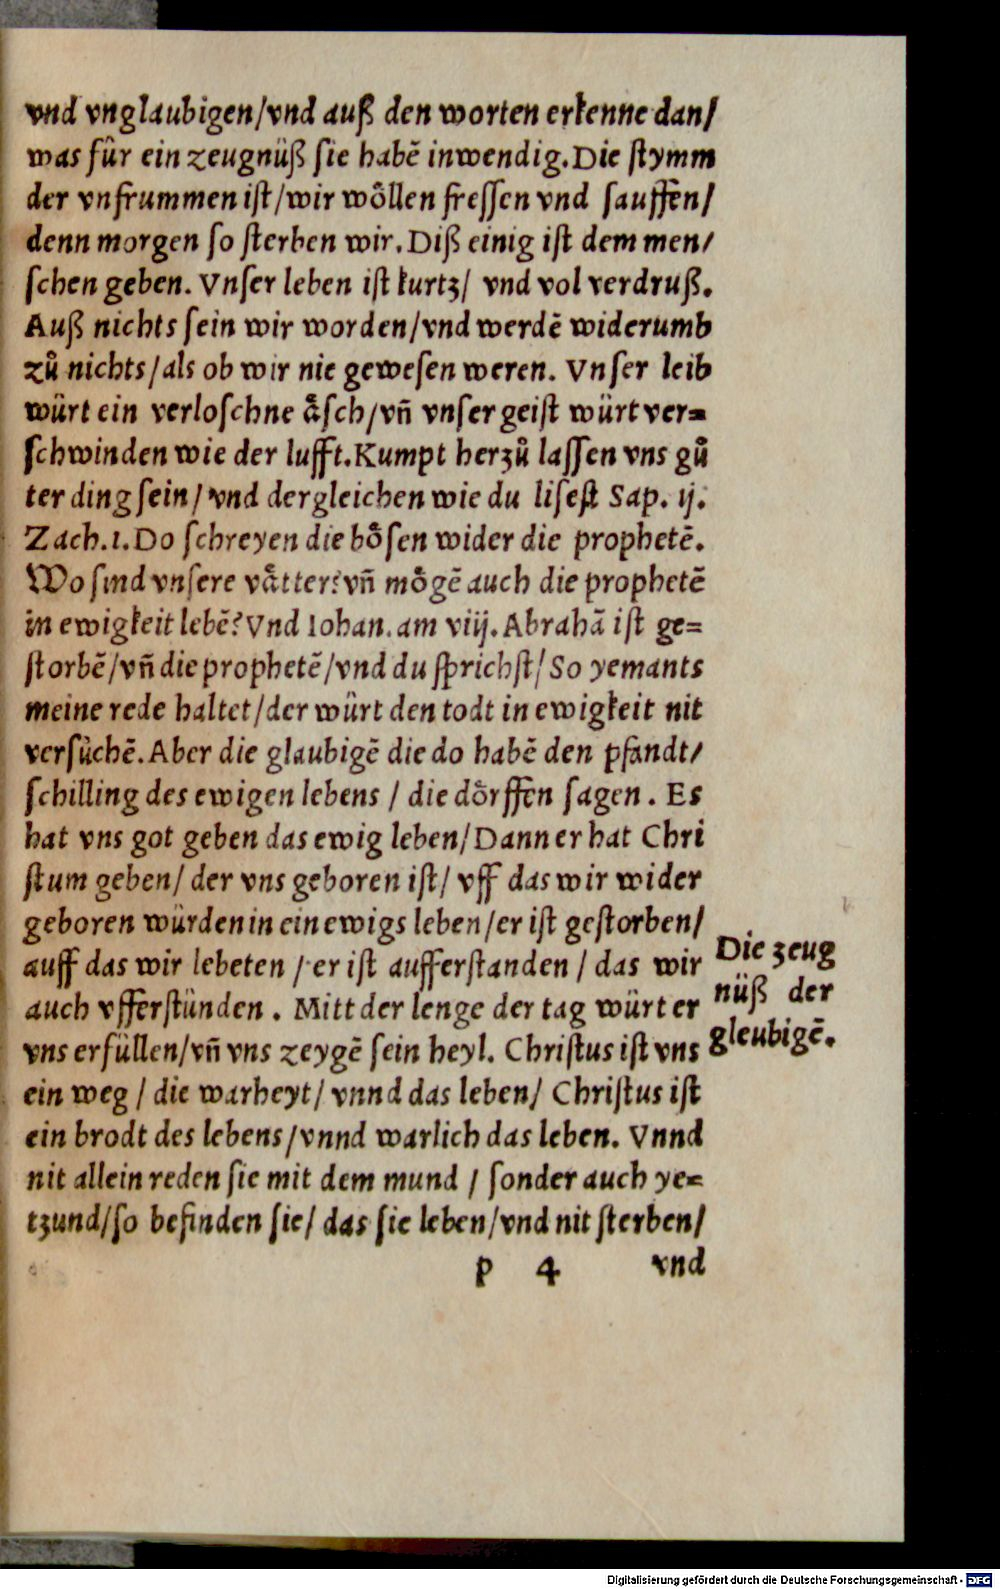 vnd vnglaubigen/vnd auß den worten erkenne dan/
was fůr ein zeugnüß sie habē inwendig. Die stymm
der vnfrummen ist/wir wôͤllen fressen vnd sauffen/
denn morgen so sterben wir. Diß einig ist dem men/
schen geben. Vnser leben ist kurtz/ vnd vol verdruß.
Auß nichts sein wir worden/vnd werdē widerumb
zů nichts/als ob wir nie gewesen weren. Vnser leib
würt ein verloschne aͤsch/vn̄ vnser geist würt ver=
schwinden wie der lufft. Kumpt herzů lassen vns gů
ter ding sein/vnd dergleichen wie du lisest Sap. ij.
Zach.1. Do schreyen die boͤsen wider die prophetē.
Wo sind vnsere vaͤtter?vn̄ moͤgē auch die prophetē
in ewigkeit lebē? Vnd Iohan. am viij. Abrahā ist ge=
storbē/vn̄ die prophetē/vnd du sprichst/So yemants
meine rede haltet/der würt den todt in ewigkeit nit
versůchē. Aber die glaubigē die do habē den pfandt/
schilling des ewigen lebens / die doͤrffen sagen. Es
hat vns got geben das ewig leben/Dann er hat Chri
stum geben/ der vns geboren ist/ vff das wir wider
geboren würden in ein ewigs leben/er ist gestorben/
auff das wir lebeten / er ist aufferstanden / das wir
auch vfferstünden. Mitt der lenge der tag würt er
vns erfüllen/vn̄ vns zeygē sein heyl. Christus ist vns
ein weg / die warheyt/ vnnd das leben/ Christus ist
ein brodt des lebens/vnnd warlich das leben. Vnnd
nit allein reden sie mit dem mund / sonder auch ye=
tzund/so befinden sie/ das sie leben/vnd nit sterben/
p 4 vnd
Die zeug
nüß der
gleubigē.
Digitalisierung gefördert durch die Deutsche Forschungsgemeinschaft - DFG